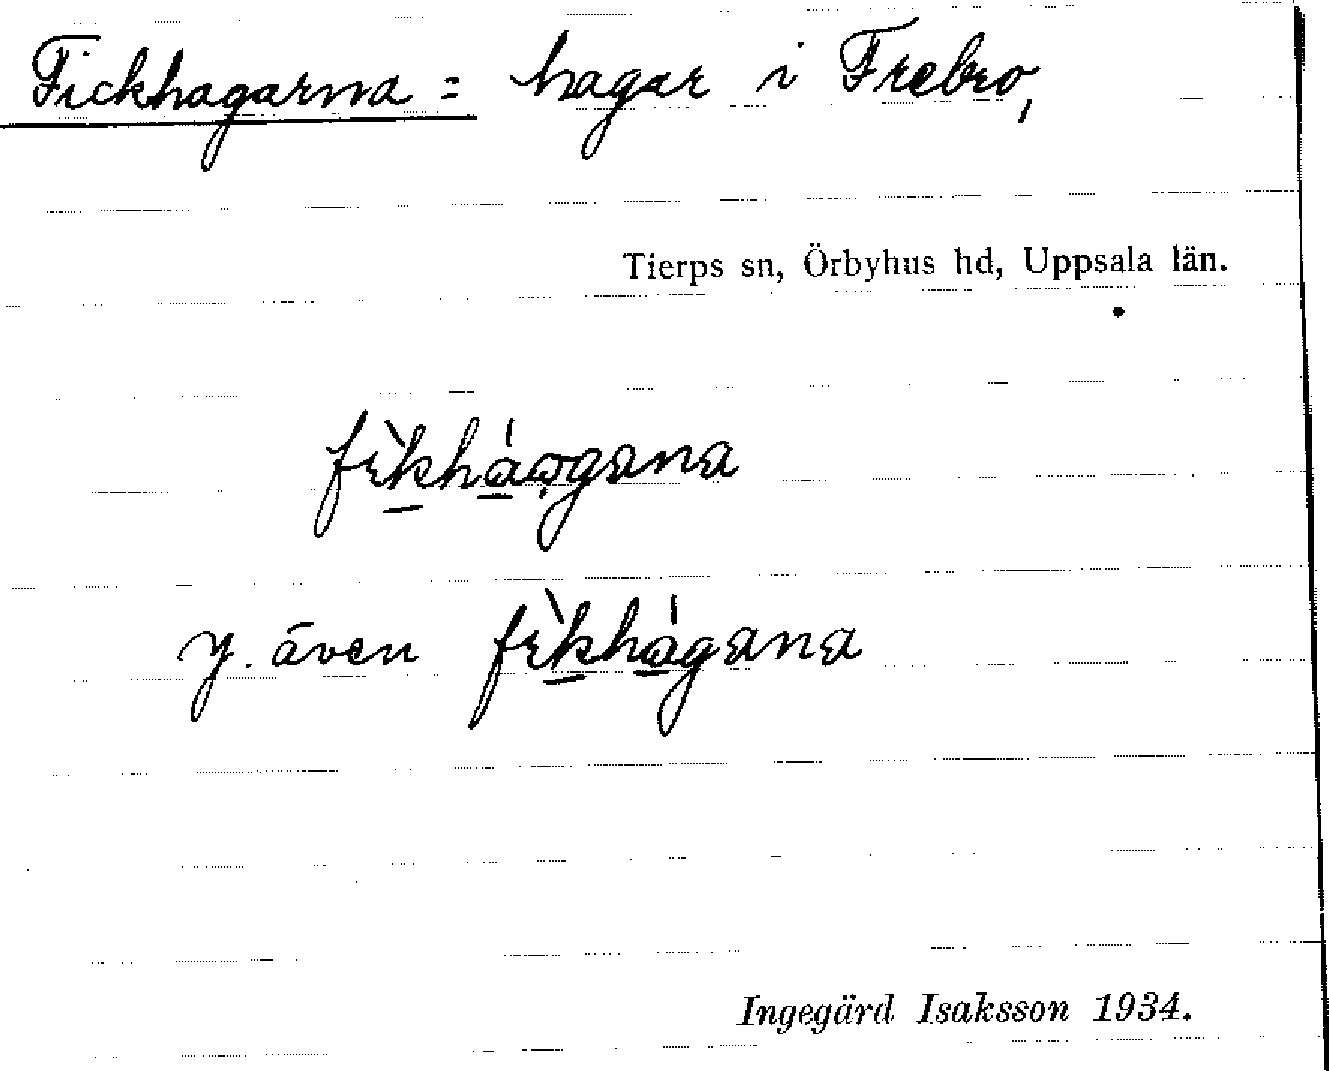 Fickhagarna = hagar i Frebro,
Tierps sn, Örbyhus hd, Uppsala län.
y. även
Ingegärd Isaksson 1934.